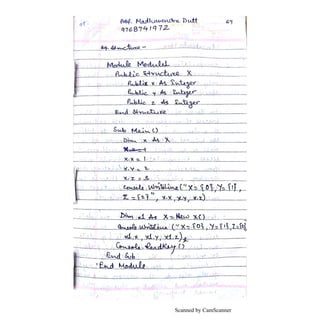 Prof. Madhavendra Dutt 69
9768741972
Structure -
Module Module1
Public Structure X
Public x As Integer
Public Y As Integer
Public Z As Integer
End Structure
Sub Main()
Dim x As X
x.x = 1
x.Y = 2
x.Z = 3
Console.Writeline("X = {0}, Y= {1},
Z = {2}", x.x, x.Y, x.Z)
Dim x1 As X = New X()
Console.Writeline ("X= {0}, Y= {1}, Z={2}",
x1.x, x1.Y, x1.Z)
Console.ReadKey()
End Sub
End Module
Scanned by CamScanner